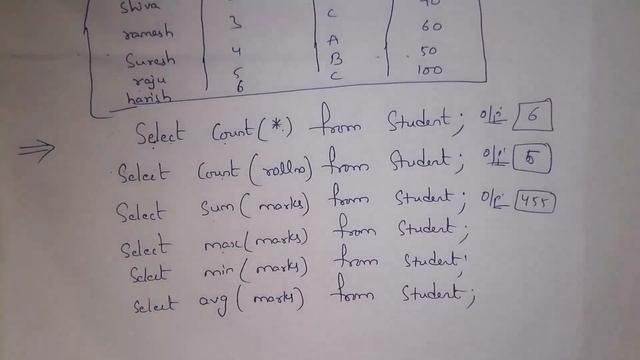 Shiva 3 C 90
ramesh 4 A 60
Suresh 5 B 50
raju 6 C 100
harish
Select Count(*) from Student; o/p 6
Select Count(rollno) from Student; o/p 5
Select sum(marks) from Student; o/p 455
Select max(marks) from Student;
Select min(marks) from Student;
Select avg(marks) from Student;